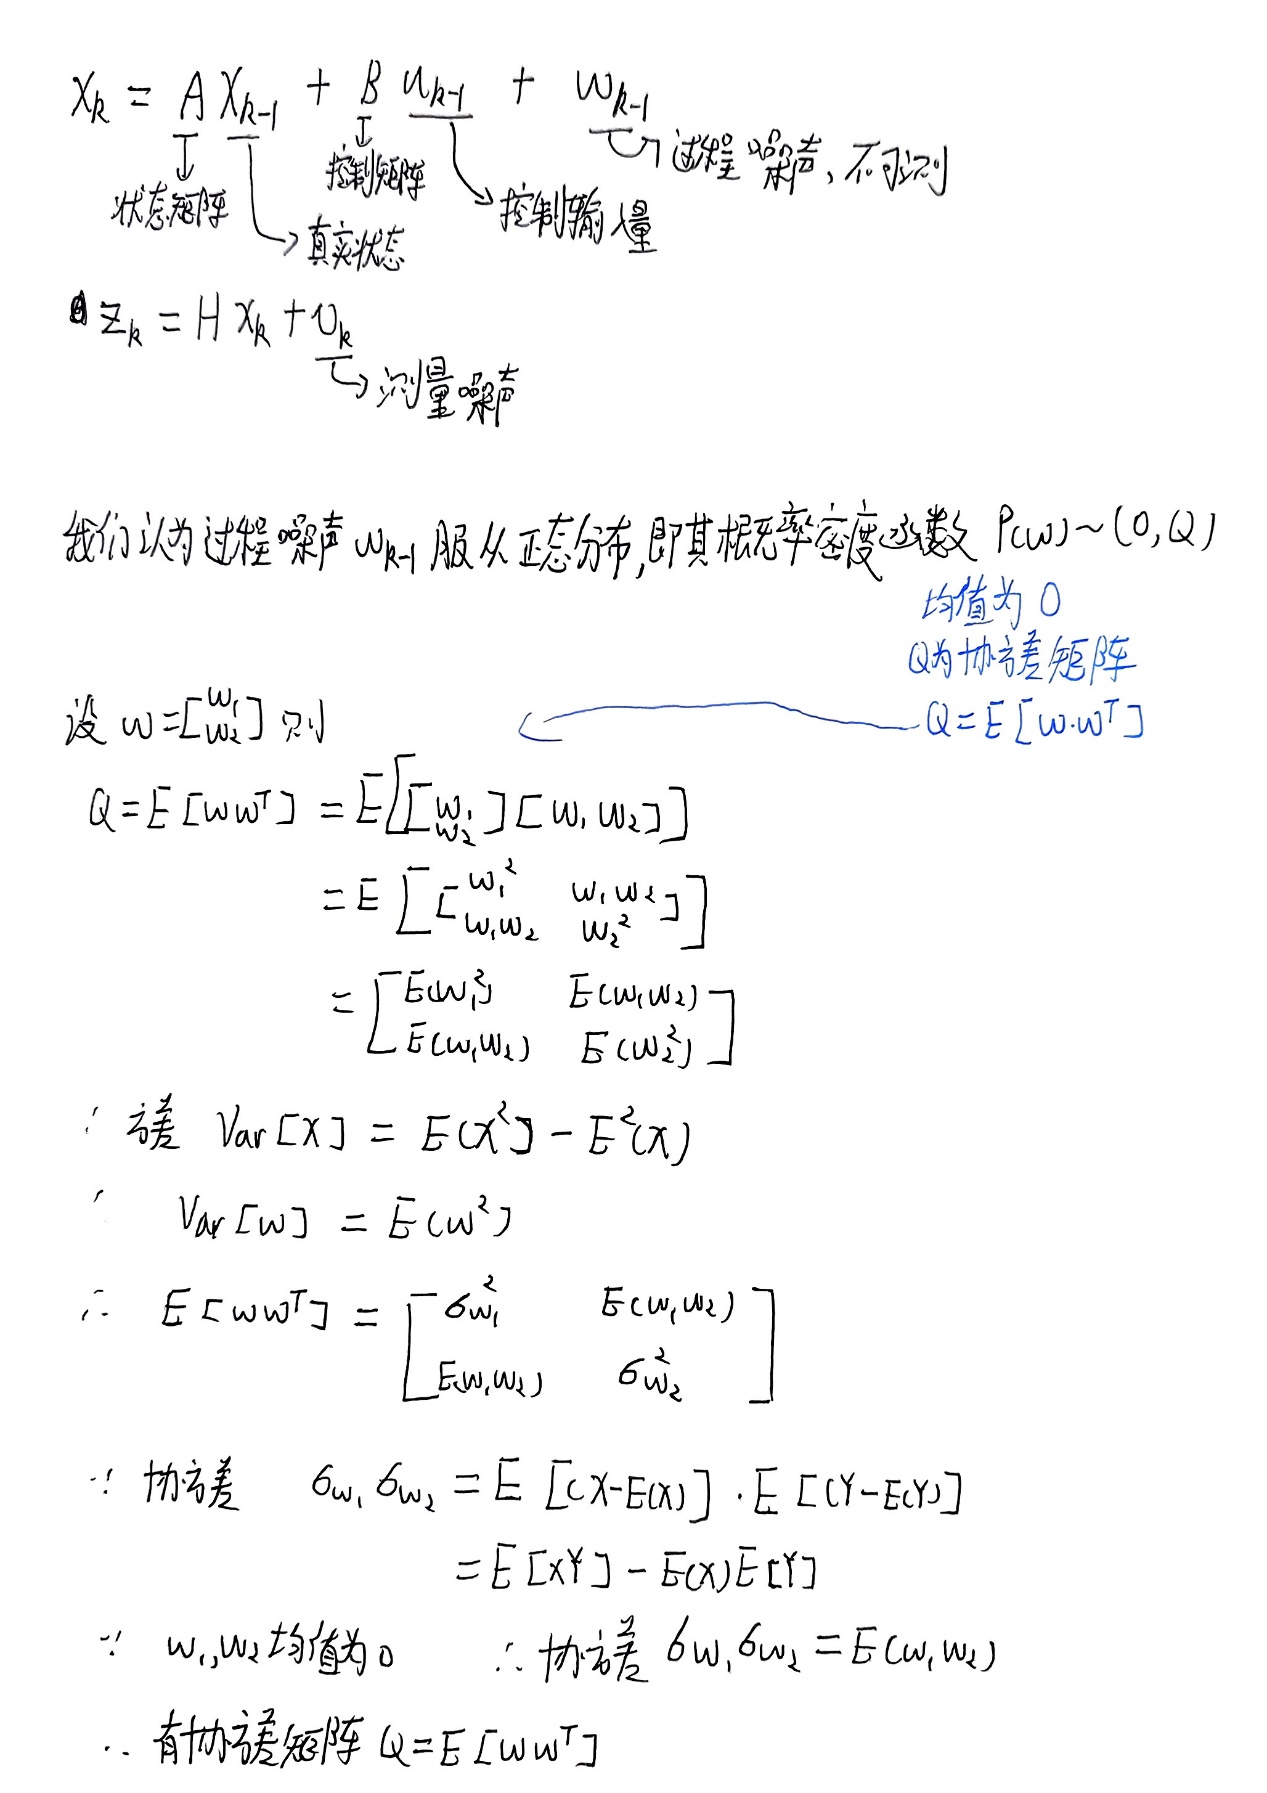 X_k = A X_{k-1} + B u_{k-1} + w_{k-1}
状态矩阵
真实状态
控制矩阵
控制输入量
过程噪声、不可测
Z_k = H X_k + υ_k
测量噪声
我们认为过程噪声 w_{k-1} 服从正态分布,即其概率密度函数 P(w) ~ (0, Q)
均值为 0
Q为协方差矩阵
Q = E [w·w^T]
设 w = [w_1 w_2] 则
Q = E [ww^T] = E[[w_1 w_2] [w_1 w_2]]
= E [[w_1^2 w_1w_2
w_1w_2 w_2^2]]
= [E(w_1^2) E(w_1w_2)
E(w_1w_2) E(w_2^2)]
∵ 方差 Var[X] = E(X^2] - E^2(X)
Var[w] = E(w^2)
∴ E[ww^T] = [σ_{w_1}^2 E(w_1w_2)
E(w_1w_2) σ_{w_2}^2]
∵ 协方差 σ_{w_1} σ_{w_2} = E [(X-E(X)] · E [(Y-E(Y)]
= E[XY] - E(X)E[Y]
∵ w_1,w_2均值为0 ∴ 协方差 σ_{w_1}σ_{w_2} = E(w_1w_2)
∴ 有协方差矩阵 Q = E[ww^T]